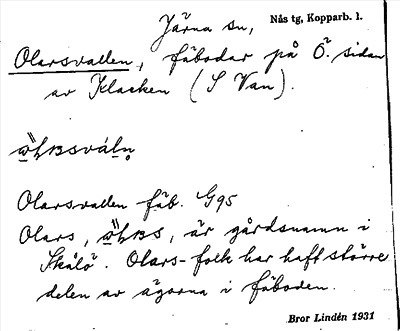 Järna sn, Nås tg, Kopparb. l.
Olarsvallen, fäbodar på Ö. sidan
av Klacken (S Van).
Olarsvallen fäb. G95
Olars, är gårdsnamn i
Skålö. Olars-folk har haft större
delen av ägorna i fäboden.
Bror Lindén 1931